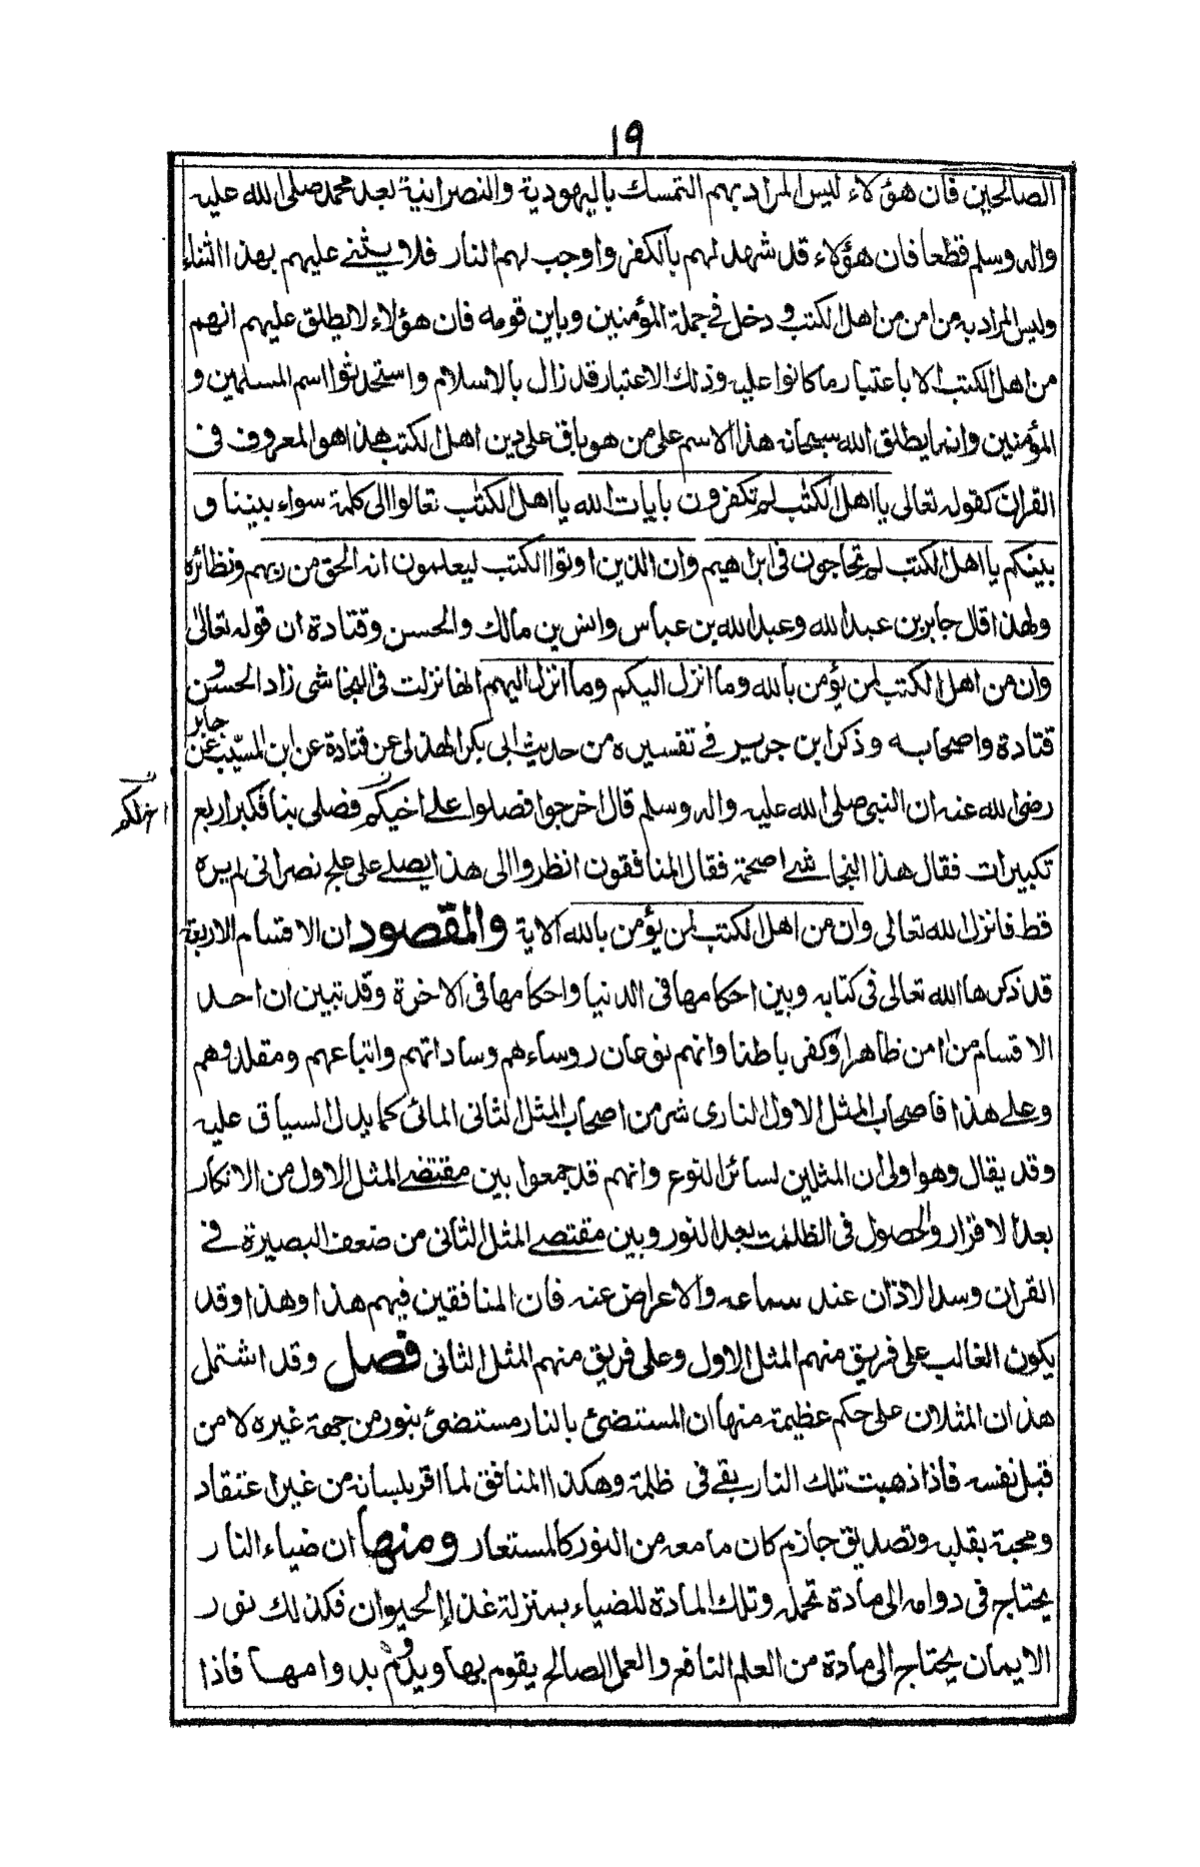 ١٩
الصالحين فان هؤلاء ليس المراد بهم التمسك باليهودية والنصرانية بعد محمد صلى الله عليه
واله وسلم قطعا فان هؤلاء قد شهد لهم بالكفر واوجب لهم النار فلا يثنے عليهم بهذا الثناء
وليس المراد به من امن من اهل الكتب و دخل في جملة المؤمنين وباين قومه فان هؤلاء لا يطلق عليهم انهم
من اهل الكتب الا باعتبار ما كانوا عليه وذلك الاعتبار قد زال بالاسلام واستحدثوا اسم المسلمين و
المؤمنين وانما يطلق الله سبحانه هذا الاسم على من هو باق على دين اهل الكتب هذا هو المعروف فى
القران كقوله تعالى يا اهل الكتٰب لم تكفرون بايات الله يا اهل الكتٰب تعالوا الى كلمة سواء بيننا و
بينكم يا اهل الكتب لم تحاجون فى ابراهيم وان الذين اوتوا الكتب ليعلمون انه الحق من ربهم ونظائره
ولهذا قال جابر بن عبد الله وعبد الله بن عباس وانس بن مالك والحسن وقتادة ان قوله تعالىٰ
وان من اهل الكتب لمن يؤمن بالله وما انزل اليكم وما انزل اليهم انها نزلت فى النجاشى زاد الحسن و
قتادة واصحابه وذكر ابن جرير فے تفسيره من حديث ابى بكر الهذلى عن قتادة عن ابن المسيّب عن جابر
رضى الله عنه ان النبى صلى الله عليه واله وسلم قال اخرجوا فصلوا علے اخيكم فصلى بنا فكبر اربع
اخ لكم
تكبيرات فقال هذا النجاشے اصحمة فقال المنافقون انظروا الى هذا يصلے على علج نصرانى لم يره
قط فانزل الله تعالى وان من اهل الكتب لمن يؤمن بالله الاية والمقصود ان الاقسام الاربعة
قد ذكرها الله تعالى فى كتابه وبين احكامها فى الدنيا واحكامها فى الاخرة وقد تبين ان احد
الاقسام من امن ظاهرا وكفر باطنا وانهم نوعان روساءهم وساداتهم واتباعهم ومقلدوهم
وعلے هذا فاصحاب المثل الاول النارى شر من اصحاب المثل الثانى المائى كما يدل السياق عليه
وقد يقال وهو اولى ان المثلين لسائر النوع وانهم قد جمعوا بين مقتضے المثل الاول من الانكار
بعد الاقرار والحصول فى الظلمٰت بعد النور وبين مقتضے المثل الثانى من ضعف البصيرة فے
القران وسد الاذان عند سماعه والاعراض عنه فان المنافقين فيهم هذا وهذا وقد
يكون الغالب على فريق منهم المثل الاول وعلى فريق منهم المثل الثانى فصل وقد اشتمل
هذان المثلان على حكم عظيمة منها ان المستضئ بالنار مستضئ بنور من جهة غيره لا من
قبل نفسه فاذا ذهبت تلك النار بقے فى ظلمة وهكذا المنافق لما اقر بلسانه من غير اعتقاد
ومحبة بقلبه وتصديق جازم كان ما معه من النور كالمستعار ومنها ان ضياء النار
يحتاج فى دوامه الى مادة تحمله وتلك المادة للضياء بمنزلة غذاء الحيوان فكذلك نور
الايمان يحتاج الى مادة من العلم النافع والعمل الصالح يقوم بها ويدوم بدوامها فاذا